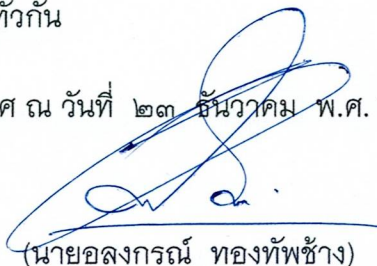 ทั่วกัน
ศ ณ วันที่ ๒๓ ธันวาคม พ.ศ.
(นายอลงกรณ์ ทองทัพช้าง)